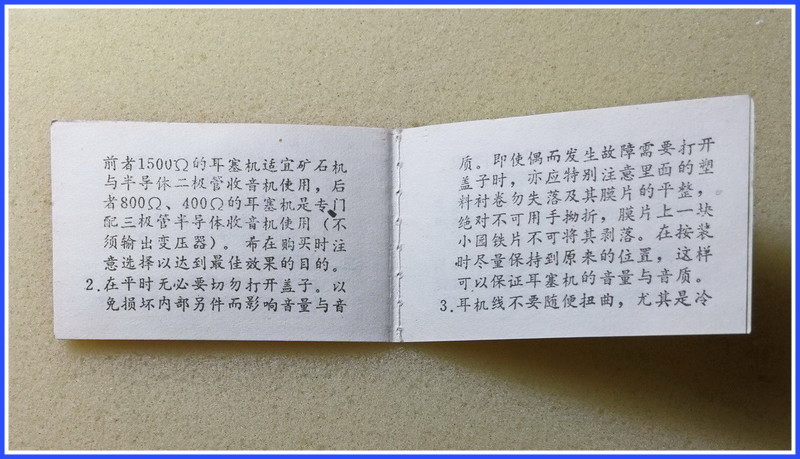 前者1500Ω的耳塞机适宜矿石机
与半导体二极管收音机使用，后
者800Ω、400Ω的耳塞机是专门
配三极管半导体收音机使用（不
须输出变压器）。希在购买时注
意选择以达到最佳效果的目的。
2.在平时无必要切勿打开盖子。以
免损坏内部另件而影响音量与音
质。即使偶而发生故障需要打开
盖子时，亦应特别注意里面的塑
料衬卷勿失落及其膜片的平整，
绝对不可用手拗折，膜片上一块
小园铁片不可将其剥落。在按装
时尽量保持到原来的位置，这样
可以保证耳塞机的音量与音质。
3.耳机线不要随便扭曲，尤其是冷